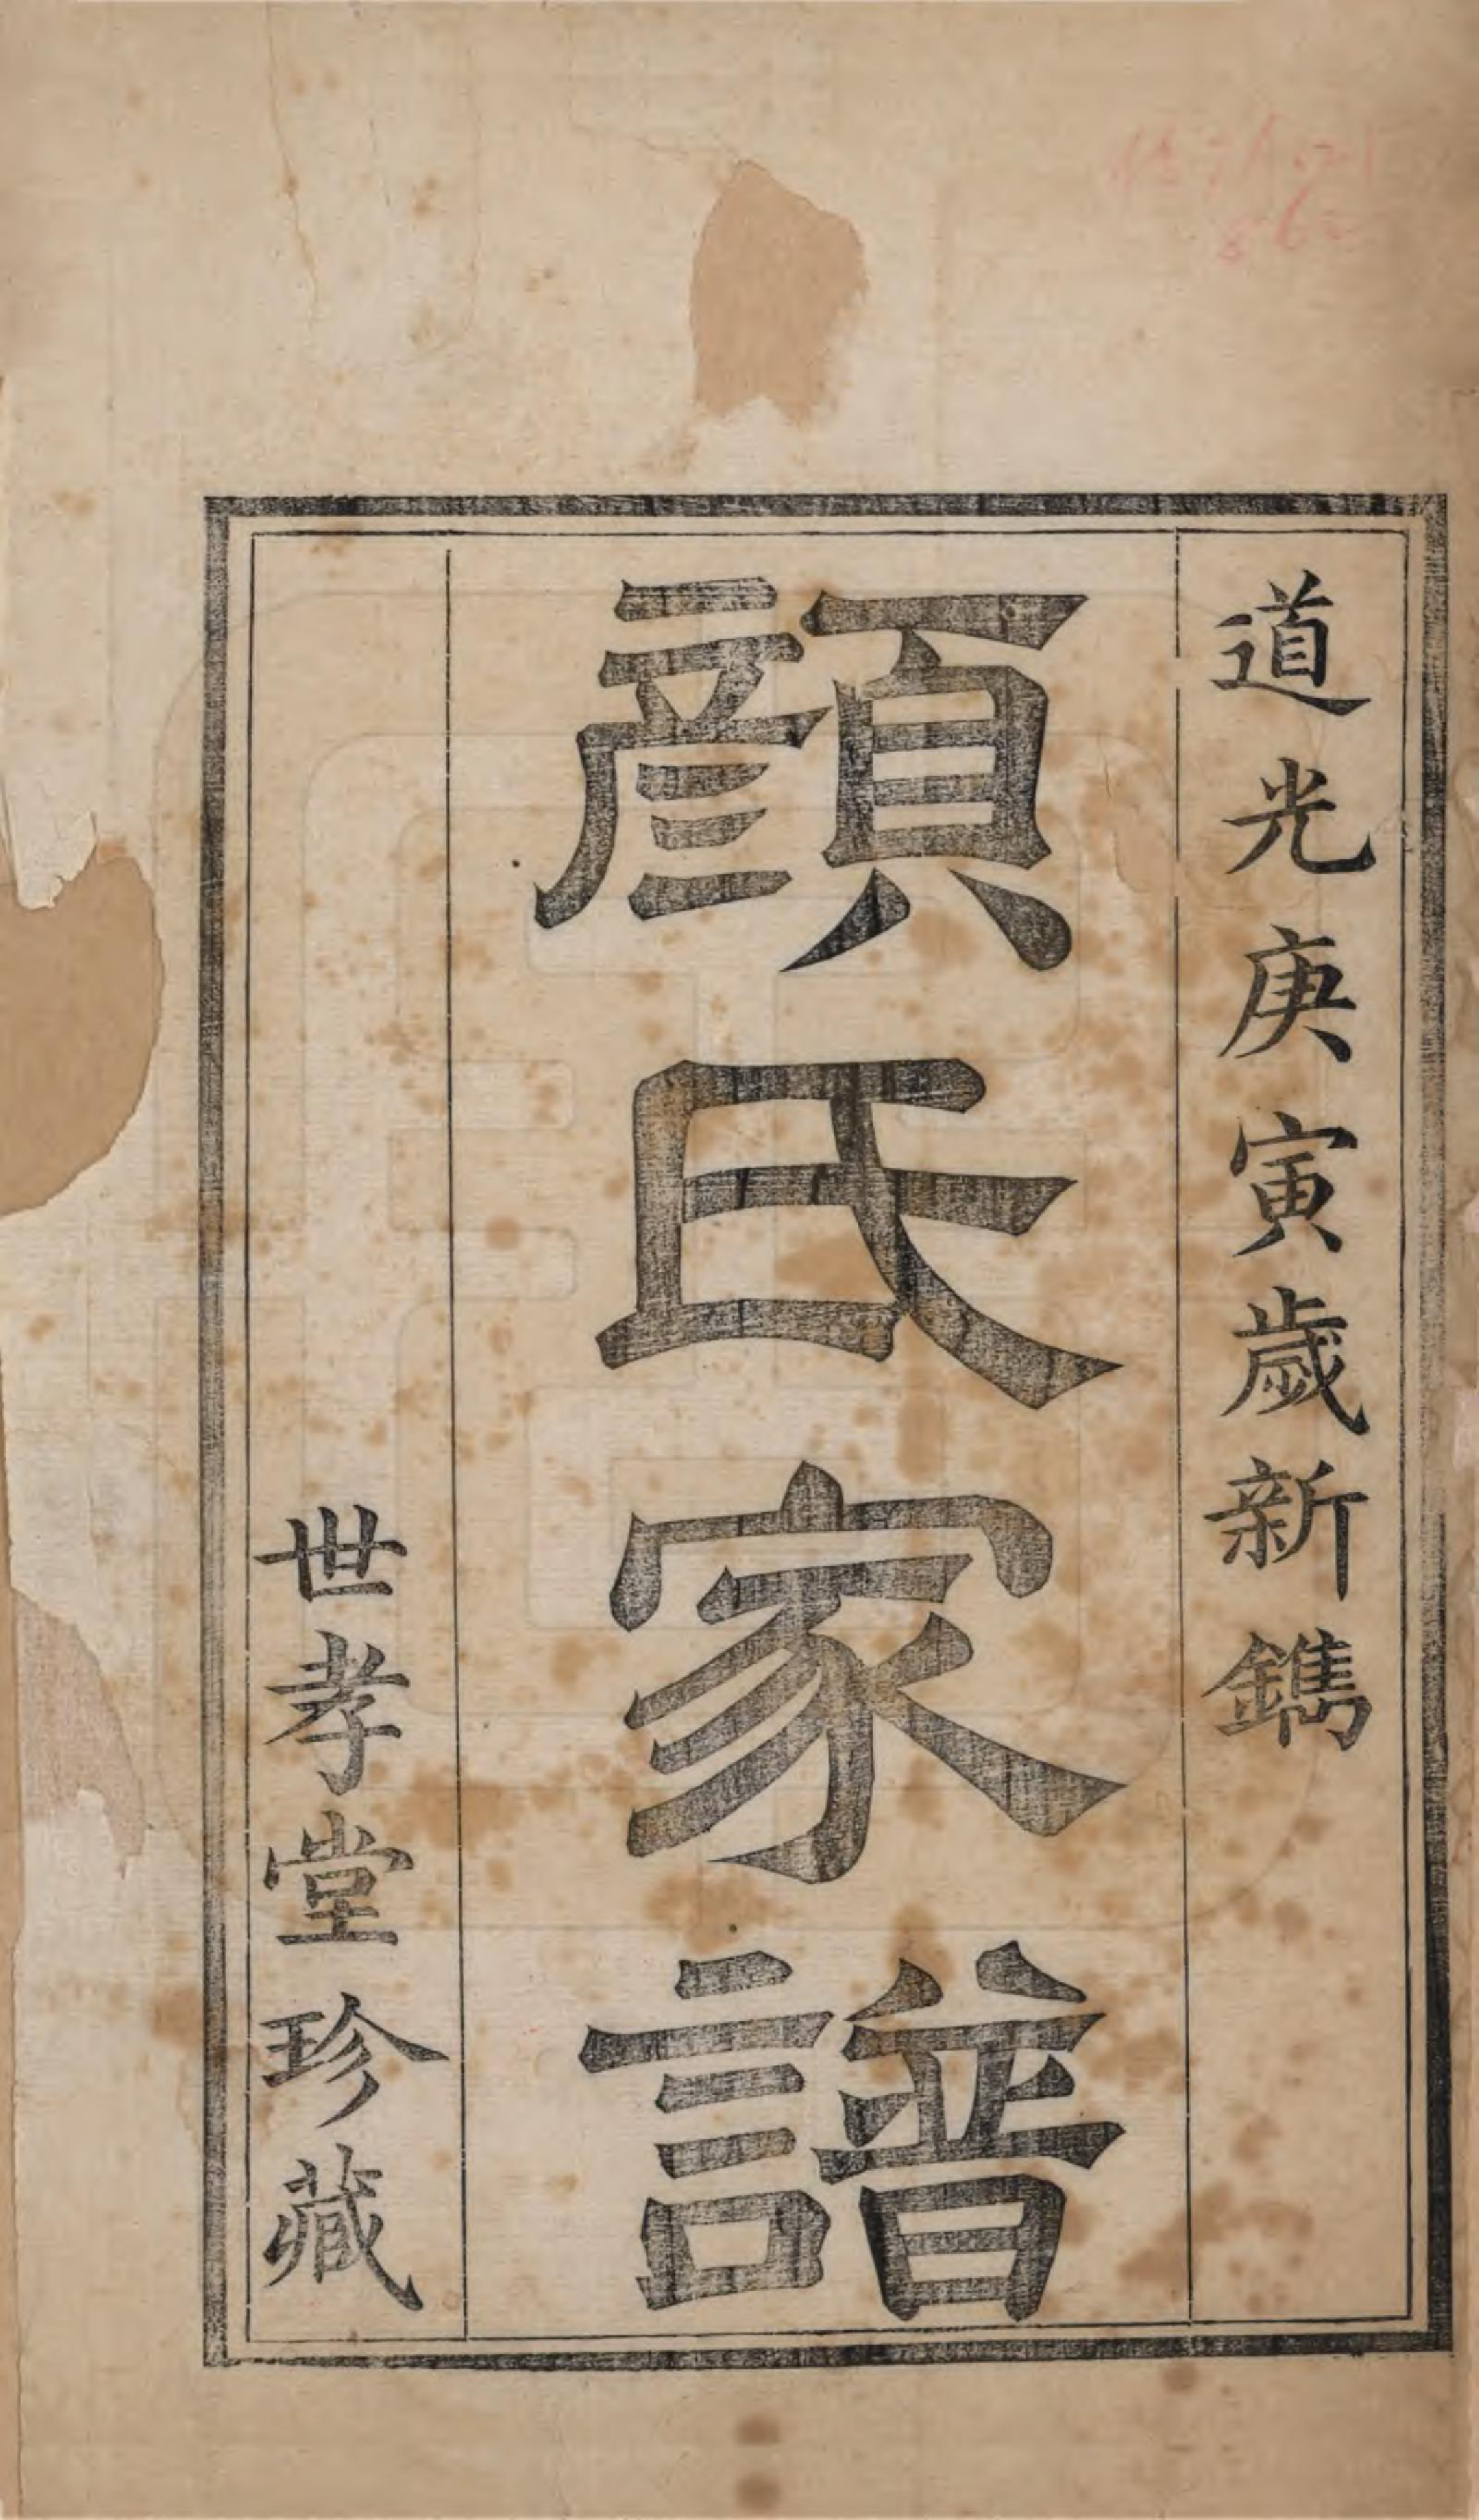 道光庚寅歲新鐫
顔氏家譜
世孝堂珍藏